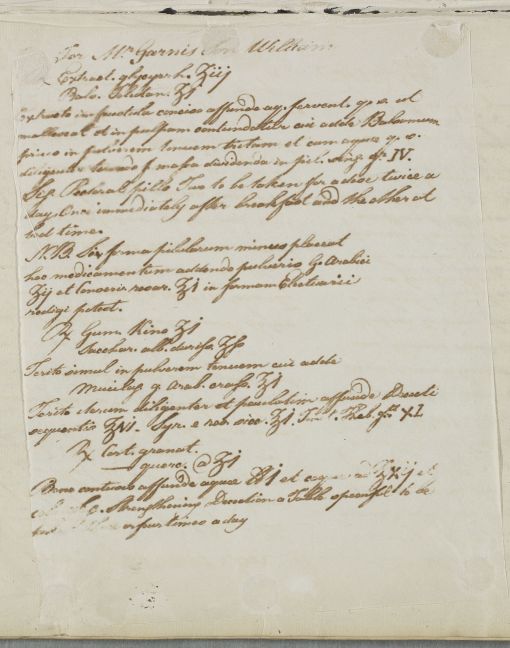 For Mr Garnis Son William
Extract. glycyrrh. ʒiij
Bals. Tolutan. ʒi
Extracto in frustula conciso affunde aq. fervent. q. s. ut
mollescat et in pulpam contundatur cui adde Balsamum
prius in pulverem tenuem tritam et cum aquae q. s.
diligenter terendo f. massa dividenda in pil. sing. gr. IV.
Sep. Rotund. pills Two to be taken for a dose twice a
day, One immediately after breakfast and the other at
bed time.
N.B. Si forma pilularum minus placeat
hoc medicamentum addendo pulveris G. Arabici
ʒij et Conserv. rosar. ʒi in formam Electuarii
redigi potest.
℞ Gum. Kino ʒi
Sacchar. alb. duriss. ʒss
Terito simul in pulverem tenuem cui adde
Mucilag. g. arab. crass. ʒi
Terito iterum diligenter et paulatim affunde Decocti
sequentis ʒVI. Syr. e ros. sicc. ʒi. Tinct. Theb. gtt. XL
℞ Cort. granat.
querc. @ ʒi
Bene contusis affunde aquae ℔i et coque ad ʒxij et
Strengthening Decoction a Table spoonful to be
or four times a day